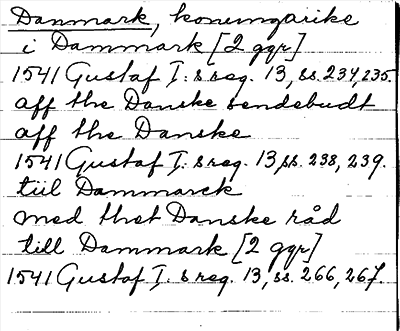 Danmark, konungarike
i Dammark [2 ggr]
1541 Gustaf I:s reg. 13, ss. 234, 235.
aff the Danske sendebudt
aff the Danske
1541 Gustaf I:s reg. 13, ss. 238, 239.
tiil Dammarck
med thet Danske råd
till Dammark [2 ggr]
1541 Gustaf I:s reg. 13, ss. 266, 267.